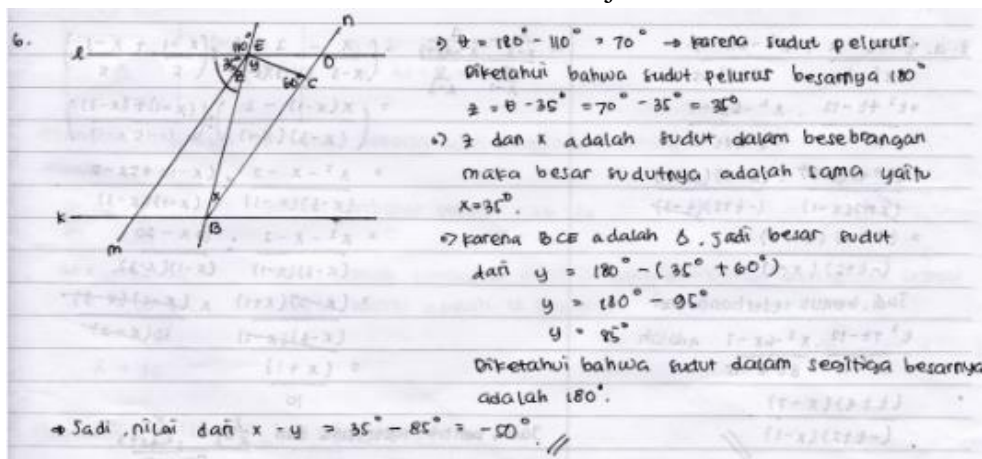 6.
n
110° E
l
35° y D
z 60° C
x
k B
m
•) θ = 180° - 110° = 70° → karena sudut pelurus.
Diketahui bahwa sudut pelurus besarnya 180°
z = θ - 35° = 70° - 35° = 35°
•) z dan x adalah sudut dalam besebrangan
maka besar sudutnya adalah sama yaitu
x = 35°.
•) karena BCE adalah Δ. jadi besar sudut
dari y = 180° - (35° + 60°)
y = 180° - 95°
y = 85°
Diketahui bahwa sudut dalam segitiga besarnya
adalah 180°.
Jadi, nilai dari x - y = 35° - 85° = -50°. //